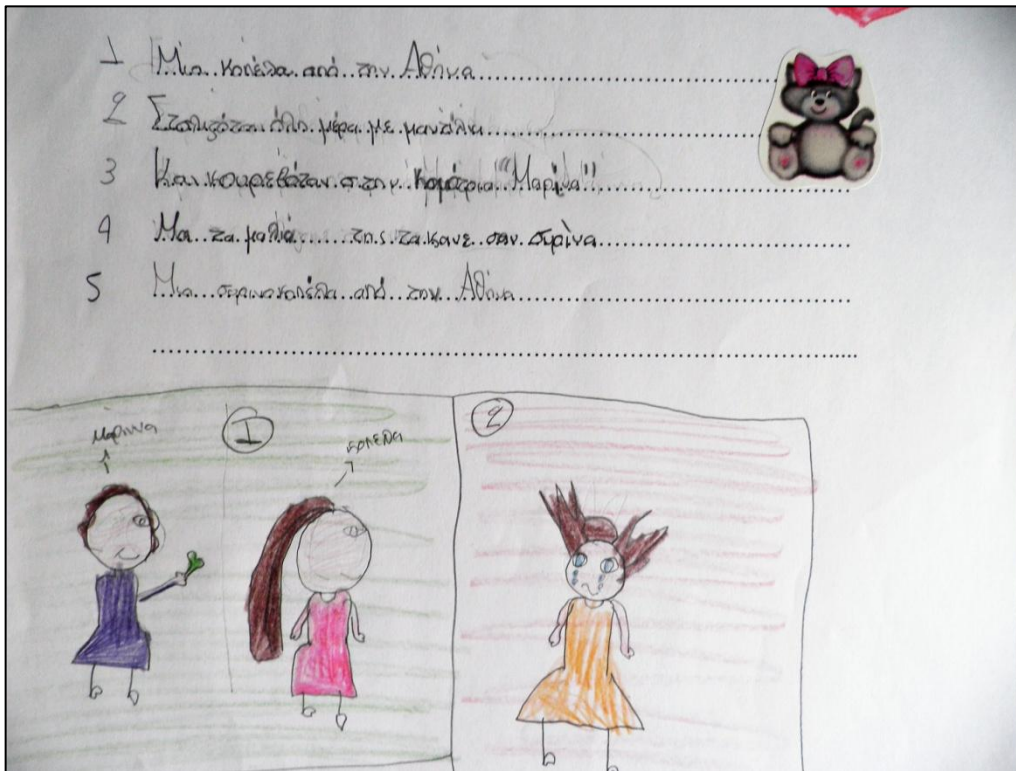 1 Μια κοπέλα από την Αθήνα
2 Στολιζόταν όλη μέρα με μαντήλια
3 Και κουρεβόταν στην κομότρια "Μαρίνα"
4 Μα τα μαλλιά της τα κανε σαν συρίνα
5 Μια σερινοκοπέλα από την Αθήνα
Μαρινα
1
κοπελα
2